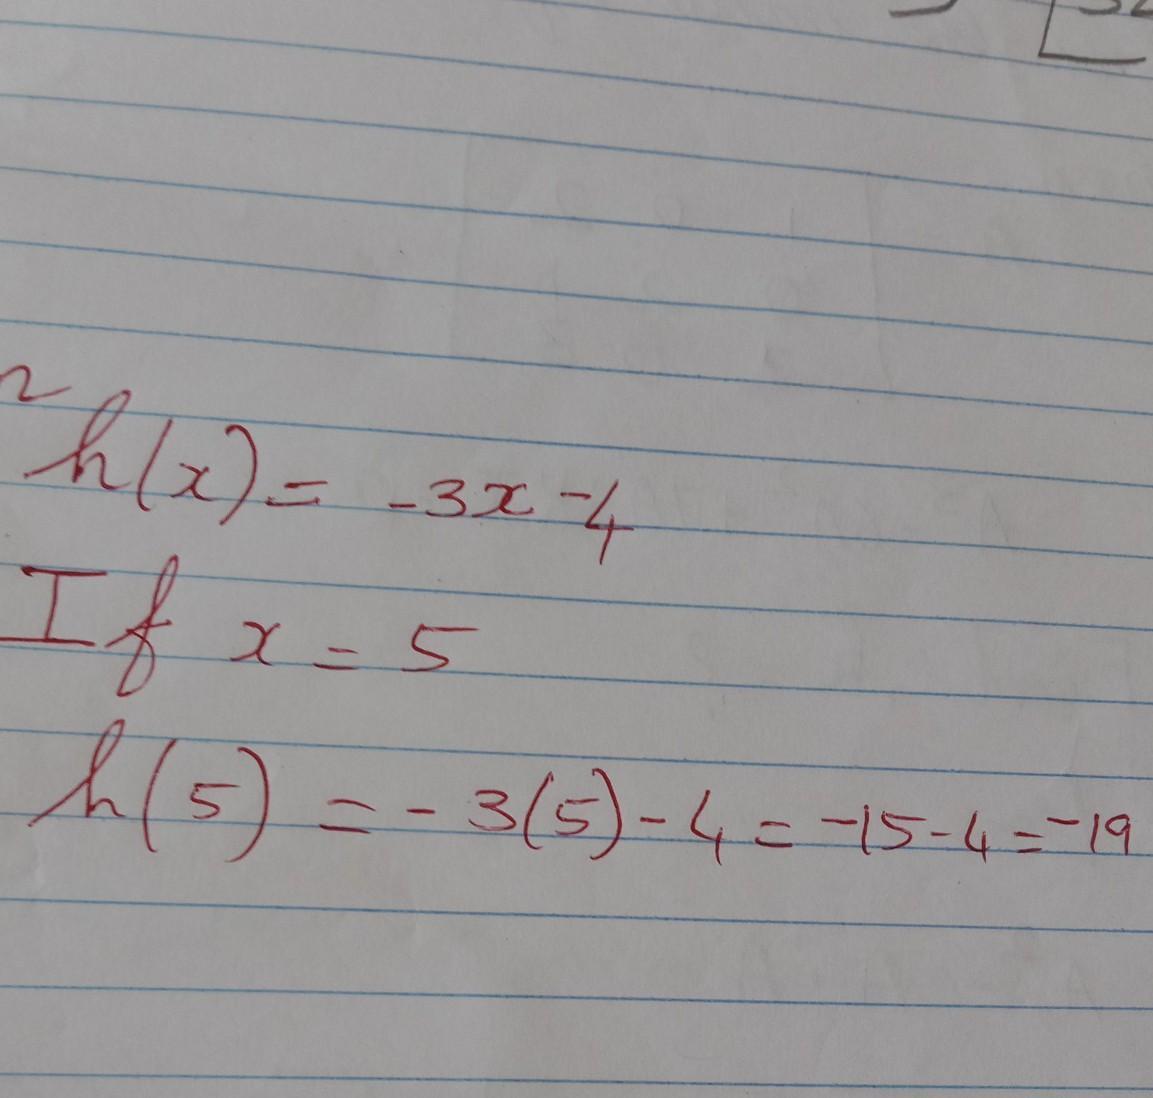 h(x) = -3x -4
If x = 5
h(5) = - 3(5) - 4 = -15 - 4 = -19